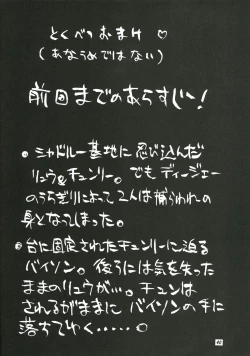 とくべつおまけ♡
(あなうめではない)
前回までのあらすじ〜!
●シャドルー基地に忍び込んだ
リュウ&チュンリー。でもディージェー
のうらぎりによって2人は捕らわれの
身となってしまった。
●台に固定されたチュンリーに迫る
バイソン。後ろには気を失った
ままのリュウが…。チュンは
されるがままにバイソンの手に
落ちてゆく……